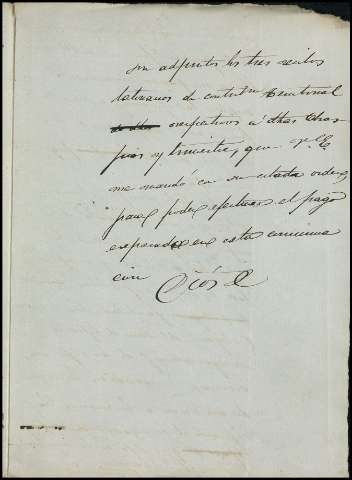 son adjuntos los tres recibos
talonarios de contribn territorial
respectivos á dhas
y trimestre, que V.E.
me mandó en su citada orden,
para poder efectuar el pago
espresado en esta comuna
cion Dios &